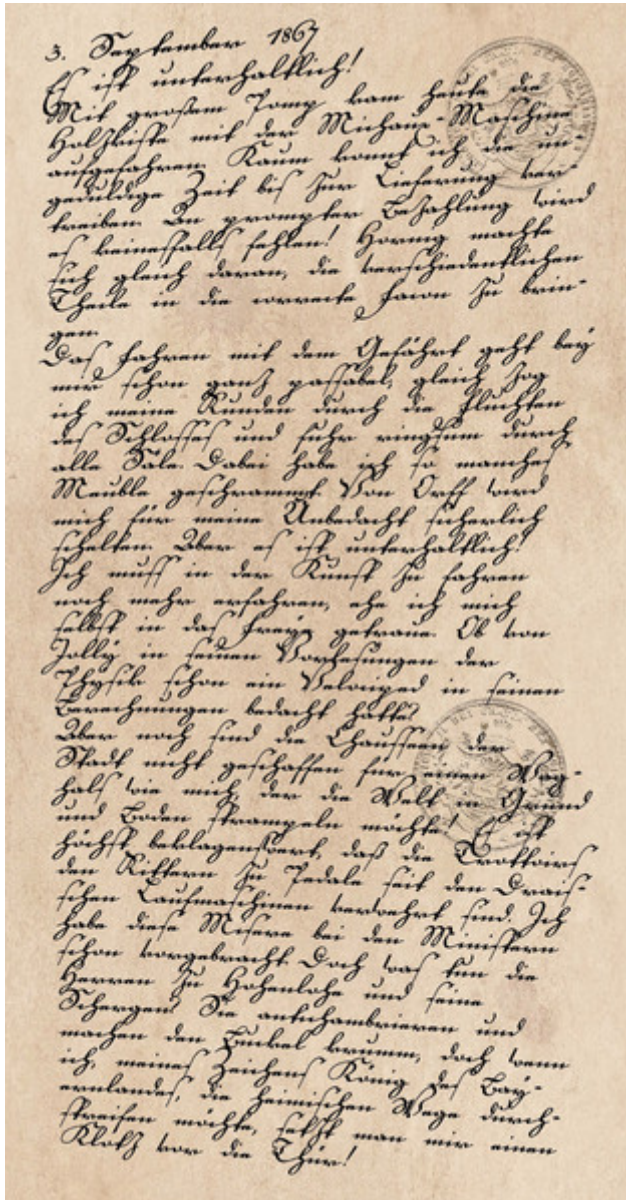 3. September 1867
Es ist unterhaltlich!
Mit großem Pomp kam heute die
Holzkiste mit der Michaux-Maschine
aufgefahren. Kaum konnt ich die un-
geduldige Zeit bis zur Lieferung ver-
treiben. An prompter Bezahlung wird
es keinesfalls fehlen! Hornig machte
sich gleich daran, die verschiedentlichen
Theile in die correcte Facon zu brin-
gen.
Das Fahren mit dem Gefährt geht bey
mir schon ganz passabel, gleich zog
ich meine Runden durch die Fluchten
des Schlosses und fuhr ringsum durch
alle Säle. Dabei habe ich so manches
Meuble geschrammt. Von Orff wird
mich für meine Unbedacht sicherlich
schelten. Aber es ist unterhaltlich!
Ich muss in der Kunst zu fahren
noch mehr erfahren, ehe ich mich
selbst in das Freye getraue. Ob von
Jolly in seinen Vorlesungen der
Physik schon ein Velociped in seinen
Berechnungen bedacht hatte?
Aber noch sind die Chausseen der
Stadt nicht geschaffen für einen Wag-
hals wie mich, der die Welt in Grund
und Boden strampeln möchte! Es ist
höchst beklagenswert, daß die Trottoirs
den Rittern zu Pedale seit den Drais-
schen Laufmaschinen verwehrt sind. Ich
habe diese Misere bei den Ministern
schon vorgebracht. Doch was tun die
Herren zu Hohenlohe und seine
Schergen? Sie antichambrieren und
machen den Buckel krumm, doch wenn
ich, meines Zeichens König des Bay-
ernlandes, die heimischen Wege durch-
streifen möchte, setzt man mir einen
Klotz vor die Thür!